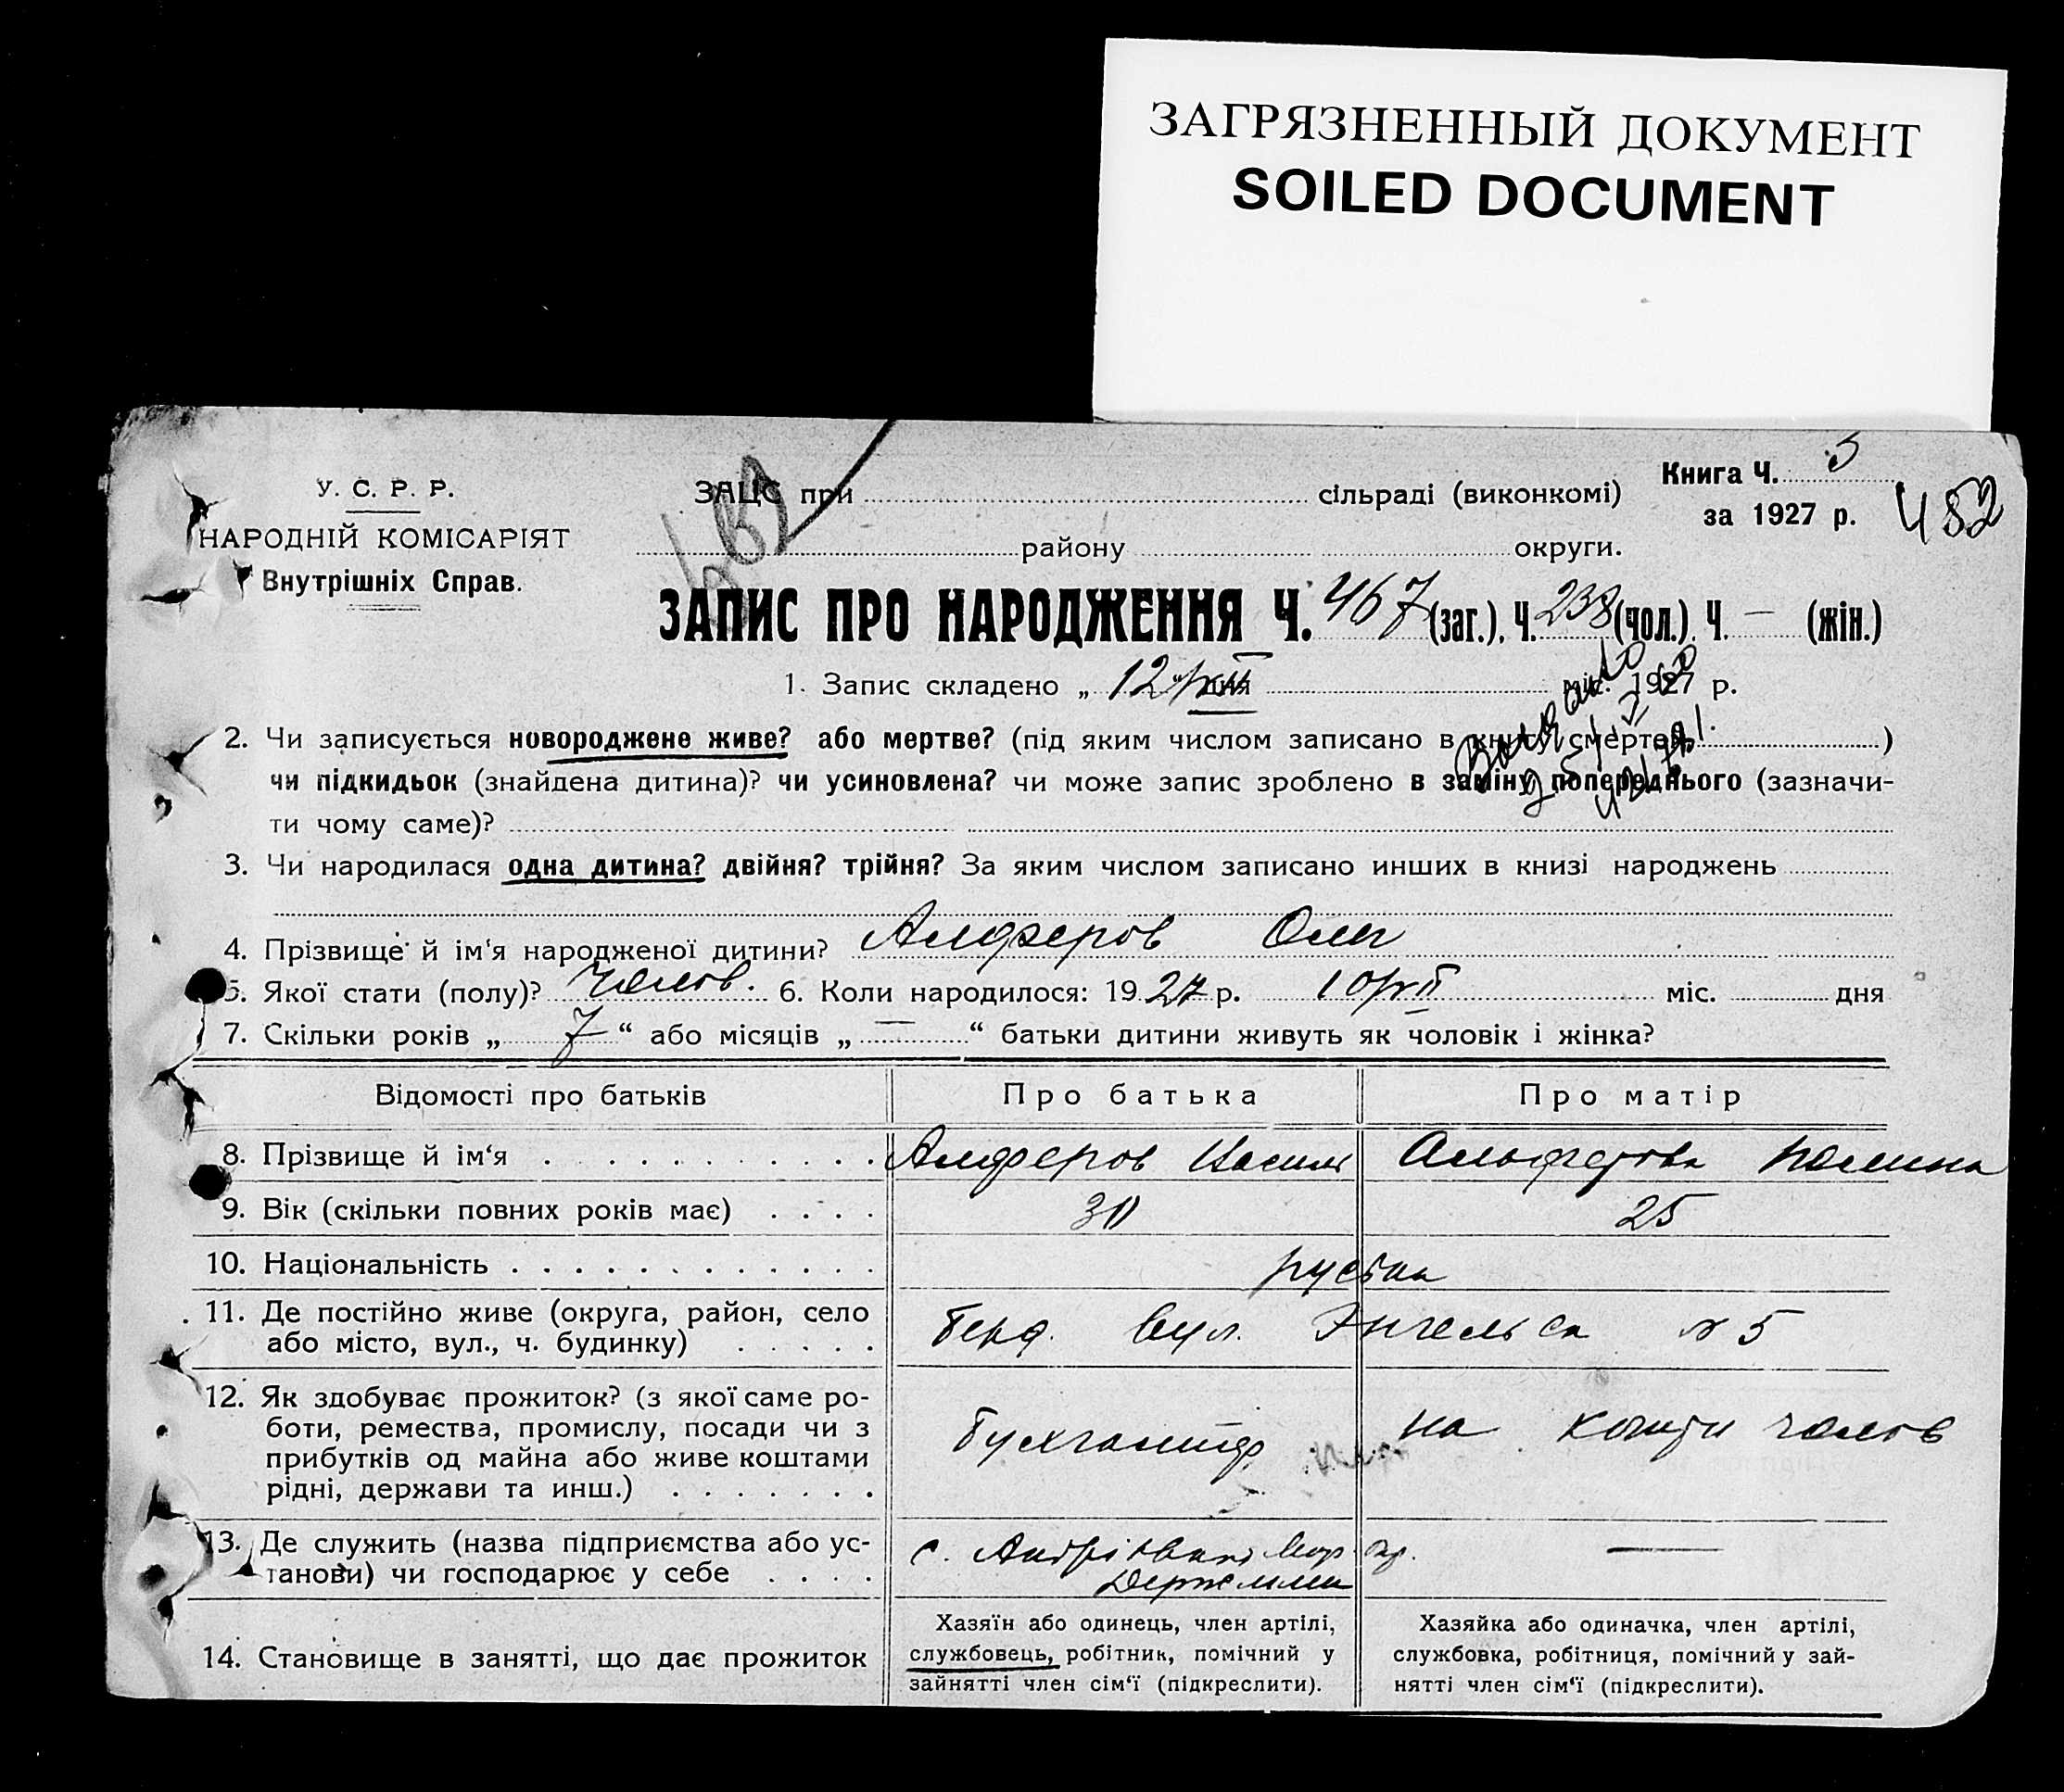 ЗАГРЯЗНЕННЫЙ ДОКУМЕНТ
SOILED DOCUMENT
У. С. Р. Р.
НАРОДНІЙ КОМІСАРІЯТ
Внутрішніх Справ.
ЗАЦС при сільраді (виконкомі)
району округи.
Книга Ч. 3
за 1927 р.
482
ЗАПИС ПРО НАРОДЖЕННЯ Ч. 467 (заг.), Ч. 238 (чол.), Ч. — (жін.)
1. Запис складено „ 12/XII дня міс. 1927 р.
2. Чи записується новороджене живе? або мертве? (під яким числом записано в книзі смертей )
чи підкидьок (знайдена дитина)? чи усиновлена? чи може запис зроблено в заміну попереднього (зазначи-
ти чому саме)?
3. Чи народилася одна дитина? двійня? трійня? За яким числом записано инших в книзі народжень
4. Прізвище й ім‘я народженої дитини? Алферов Олег
5. Якої стати (полу)? Чолов. 6. Коли народилося: 1927 р. 10/XII міс. дня
7. Скільки років „ 7 “ або місяців „ — “ батьки дитини живуть як чоловік і жінка?
Відомості про батьків Про батька Про матір
8. Прізвище й ім‘я Алферов Василь Альферова
9. Вік (скільки повних років має) 30 25
10. Національність
11. Де постійно живе (округа, район, село
або місто, вул., ч. будинку)
Берд. вул. Энгельса № 5
12. Як здобуває прожиток? (з якої саме ро-
боти, ремества, промислу, посади чи з
прибутків од майна або живе коштами
рідні, держави та инш.)
бухгалтер на кошти чолов
13. Де служить (назва підприємства або ус-
танови) чи господарює у себе
с. Андріївка окр. —
14. Становище в занятті, що дає прожиток
Хазяїн або одинець, член артілі,
службовець, робітник, помічний у
зайнятті член сім‘ї (підкреслити).
Хазяйка або одиначка, член артілі,
службовка, робітниця, помічний у зай-
нятті член сім‘ї (підкреслити).